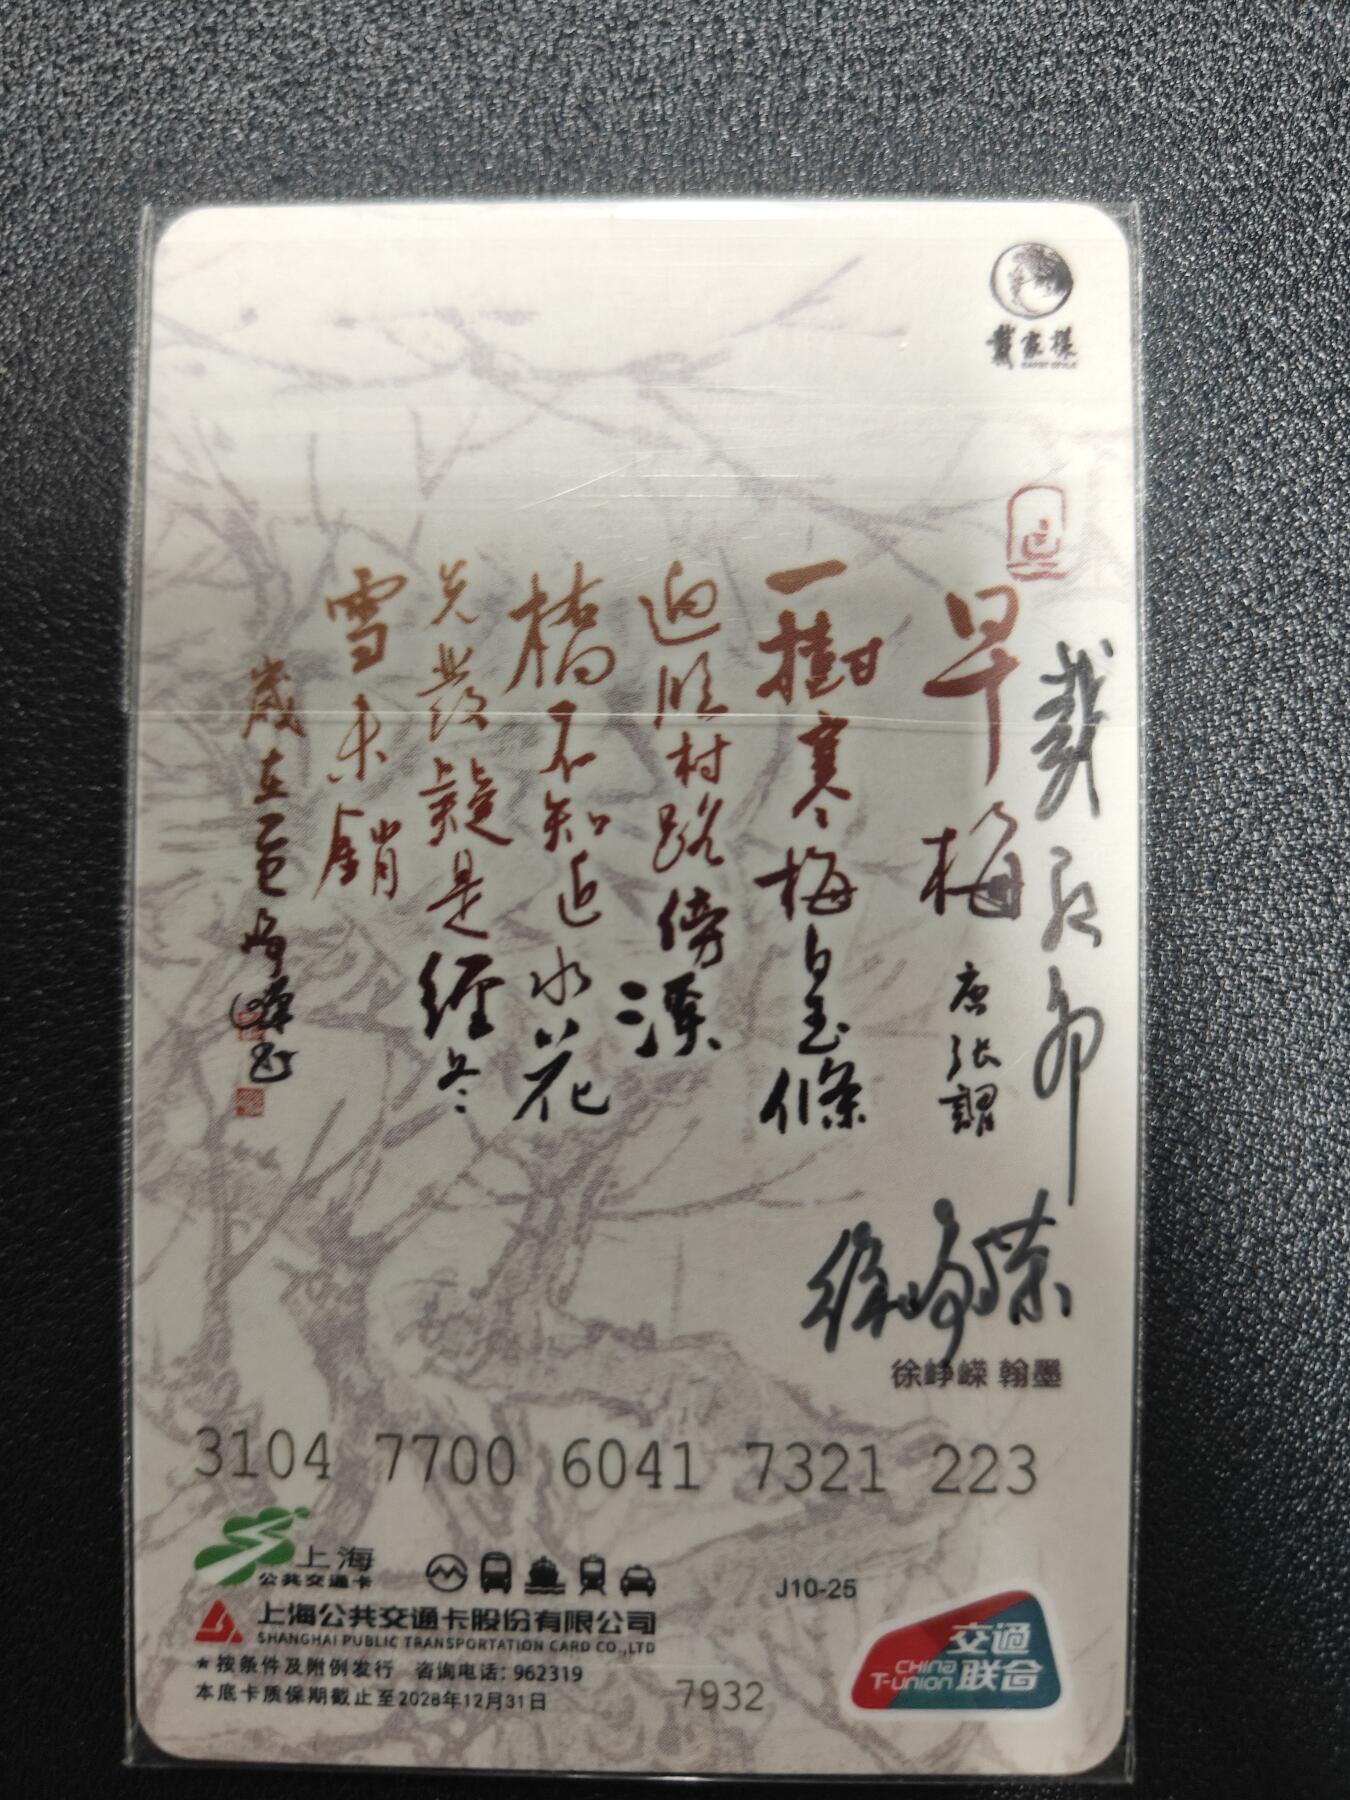 戴家樣
早梅 唐 張謂
一樹寒梅白玉條
迥临村路傍溪
橋不知近水花
先發疑是經冬
雪未銷
歲在
徐峥嵘
徐峥嵘 翰墨
3104 7700 6041 7321 223
上海
公共交通卡
J10-25
上海公共交通卡股份有限公司
SHANGHAI PUBLIC TRANSPORTATION CARD CO.,LTD
★按条件及附例发行 咨询电话：962319
本底卡质保期截止至2028年12月31日
7932
交通
联合
CHINA
T-UNION